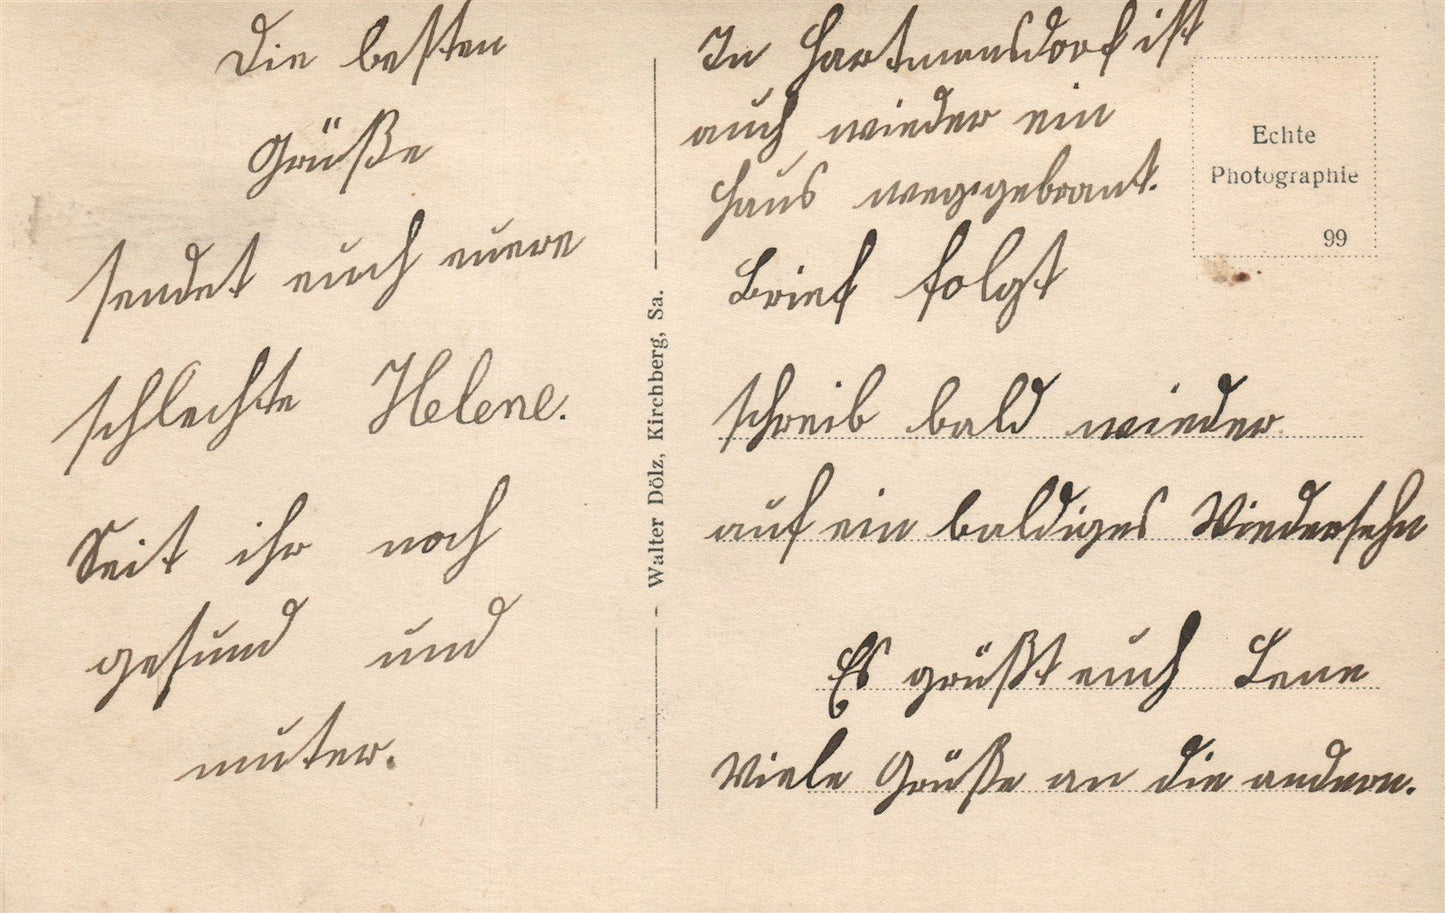 Die besten
Grüße
sendet euch euere
schlechte Helene.
Seid ihr noch
gesund und
munter.
Walter Dölz, Kirchberg, Sa.
In Hartmannsdorf ist
auch wieder ein
Haus weggebrant.
Brief folgt
schreib bald wieder
auf ein baldiges Wiedersehn
Es grüßt euch Lene
Viele Grüße an die andern.
Echte
Photographie
99